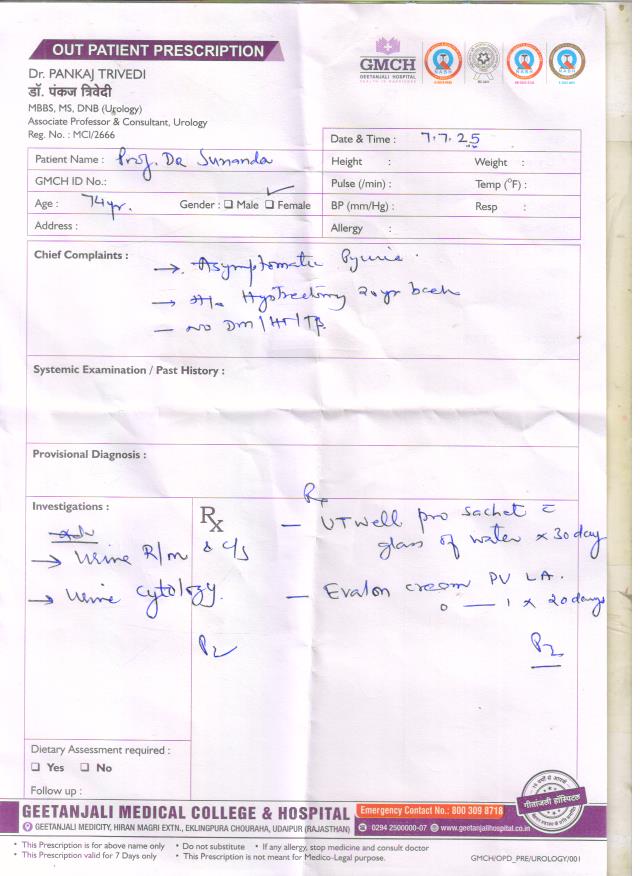 OUT PATIENT PRESCRIPTION
GMCH
GEETANJALI HOSPITAL
Dr. PANKAJ TRIVEDI
डॉ. पंकज त्रिवेदी
MBBS, MS, DNB (Urology)
Associate Professor & Consultant, Urology
Reg. No. : MCI/2666
Date & Time : 7.7.25
Patient Name : Prof. Dr Sunanda
Height : Weight :
GMCH ID No.:
Pulse (/min) : Temp (°F) :
Age : 74yr. Gender : ☐ Male ☐ Female
BP (mm/Hg) : Resp :
Address :
Allergy :
Chief Complaints :
→ Asymptomatic Pyuria
→ H/o Hystrectomy 20yr back
— No DM/HT/TB
Systemic Examination / Past History :
Provisional Diagnosis :
Investigations :
Adv
→ Urine R/m & c/s
→ Urine cytology.
Rx
Rx
— UTWell pro sachet c̄
glass of water x 30 day
— Evalon cream PV LA.
0 — 1 x 20 days
Dietary Assessment required :
☐ Yes ☐ No
Follow up :
GEETANJALI MEDICAL COLLEGE & HOSPITAL
Emergency Contact No.: 800 309 8718
GEETANJALI MEDICITY, HIRAN MAGRI EXTN., EKLINGPURA CHOURAHA, UDAIPUR (RAJASTHAN)
0294 2500000-07 www.geetanjalihospital.co.in
गीतांजली हॉस्पिटल
• This Prescription is for above name only • Do not substitute • If any allergy, stop medicine and consult doctor
• This Prescription valid for 7 Days only • This Prescription is not meant for Medico-Legal purpose.
GMCH/OPD_PRE/UROLOGY/001